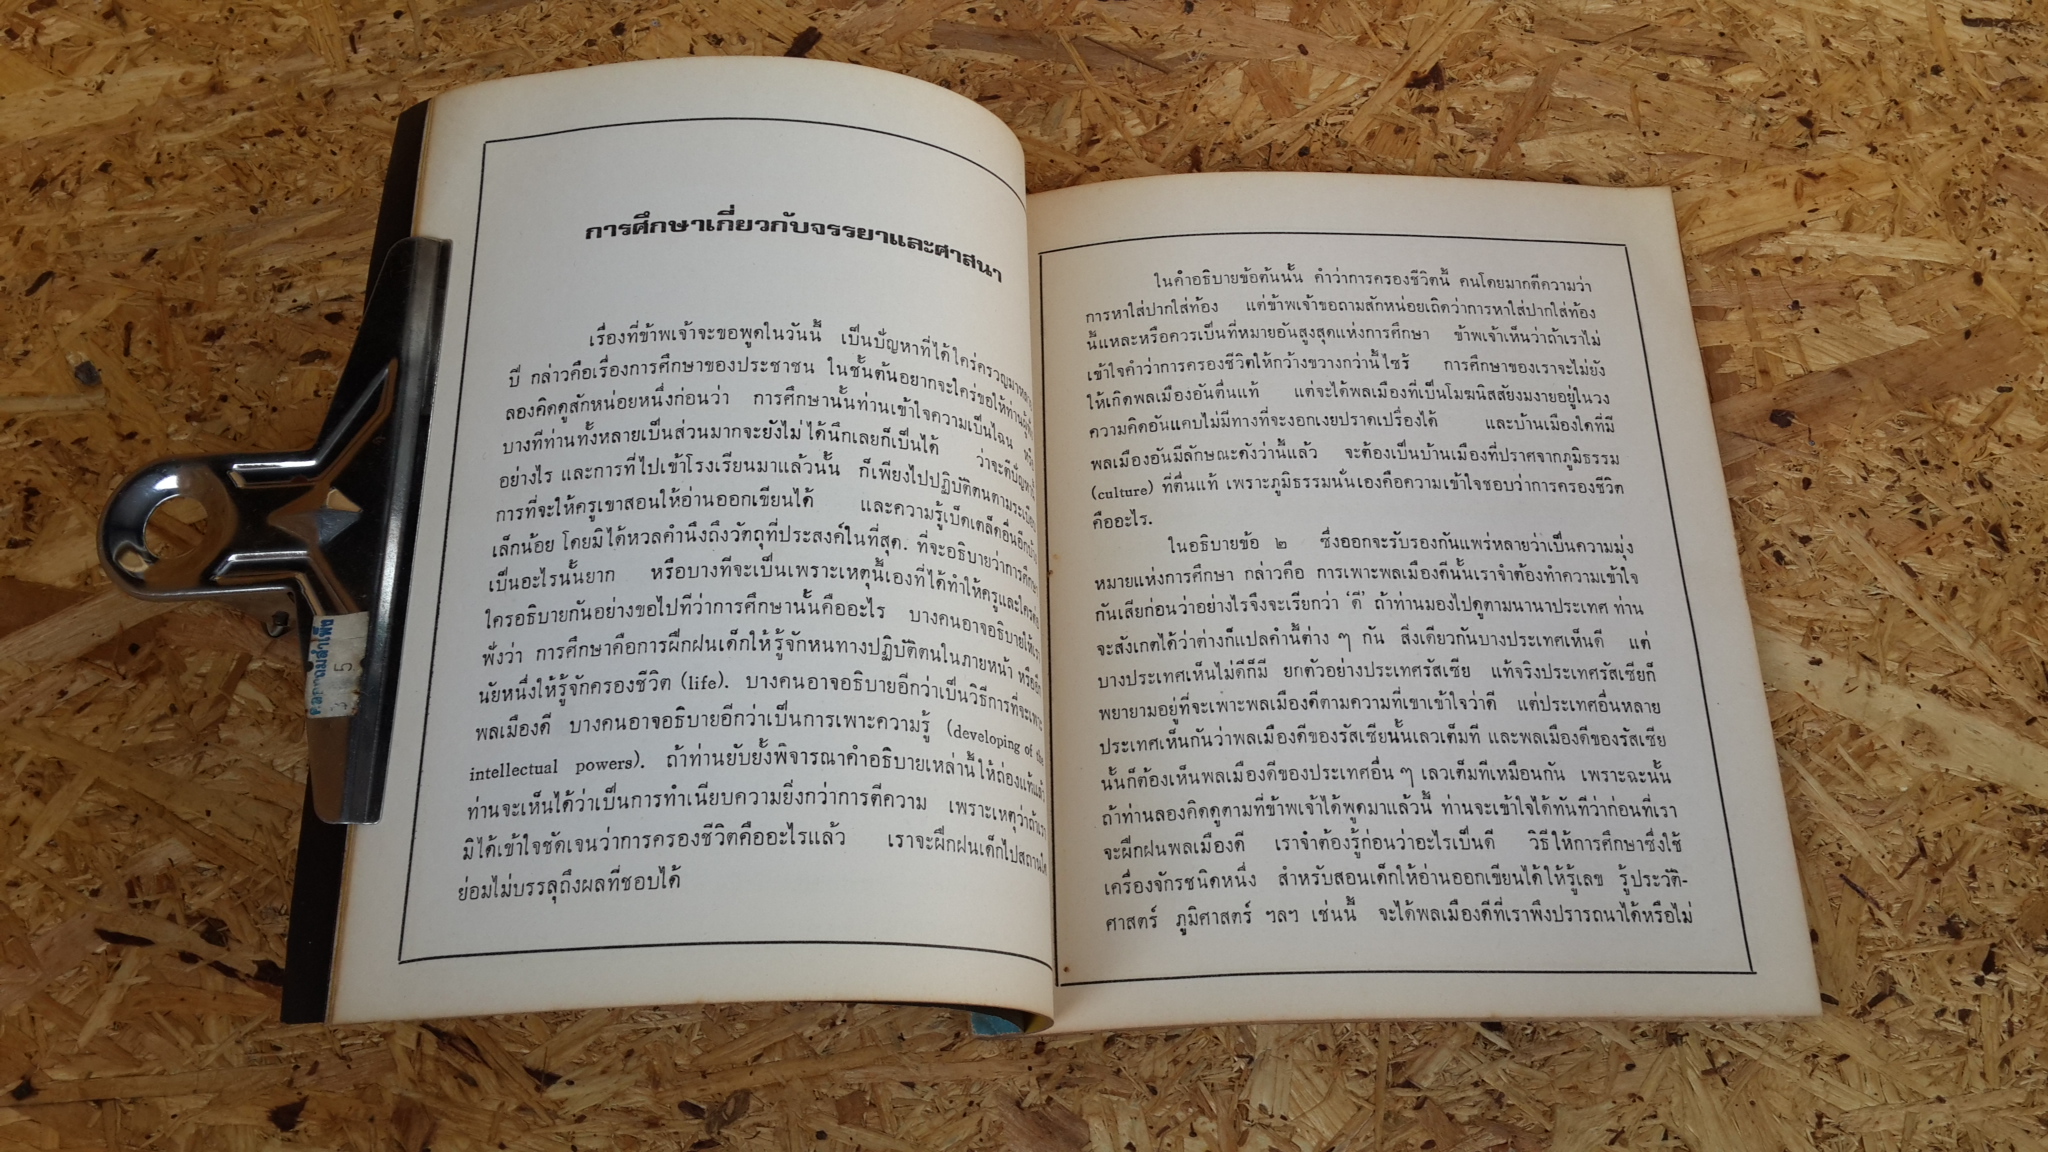 การศึกษาเกี่ยวกับจรรยาและศาสนา
เรื่องที่ข้าพเจ้าจะขอพูดในวันนี้ เป็นปัญหาที่ได้ใคร่ครวญมาหลาย
ปี กล่าวคือเรื่องการศึกษาของประชาชน ในชั้นต้นอยากจะใคร่ขอให้ท่านผู้ฟัง
ลองคิดดูสักหน่อยหนึ่งก่อนว่า การศึกษานั้นท่านเข้าใจความเป็นไฉน
บางทีท่านทั้งหลายเป็นส่วนมากจะยังไม่ได้นึกเลยก็เป็นได้ ว่าจะตีปัญหานี้
อย่างไร และการที่ไปเข้าโรงเรียนมาแล้วนั้น ก็เพียงไปปฏิบัติตนตามระเบียบ
การที่จะให้ครูเขาสอนให้อ่านออกเขียนได้ และความรู้เบ็ดเตล็ดอื่นอีก
เล็กน้อย โดยมิได้หวลคำนึงถึงวัตถุที่ประสงค์ในที่สุด. ที่จะอธิบายว่าการศึกษา
เป็นอะไรนั้นยาก หรือบางทีจะเป็นเพราะเหตุนี้เองที่ได้ทำให้ครูและใครต่อ
ใครอธิบายกันอย่างขอไปทีว่าการศึกษานั้นคืออะไร บางคนอาจอธิบายให้เรา
ฟังว่า การศึกษาคือการฝึกฝนเด็กให้รู้จักหนทางปฏิบัติตนในภายหน้า หรืออีก
นัยหนึ่งให้รู้จักครองชีวิต (life). บางคนอาจอธิบายอีกว่าเป็นวิธีการที่จะเพาะ
พลเมืองดี บางคนอาจอธิบายอีกว่าเป็นการเพาะความรู้ (developing of the
intellectual powers). ถ้าท่านยับยั้งพิจารณาคำอธิบายเหล่านี้ให้ถ่องแท้แล้ว
ท่านจะเห็นได้ว่าเป็นการทำเนียบความยิ่งกว่าการตีความ เพราะเหตุว่าถ้าเรา
มิได้เข้าใจชัดเจนว่าการครองชีวิตคืออะไรแล้ว เราจะฝึกฝนเด็กไปสถานใด
ย่อมไม่บรรลุถึงผลที่ชอบได้
ในคำอธิบายข้อต้นนั้น คำว่าการครองชีวิตนี้ คนโดยมากตีความว่า
การหาใส่ปากใส่ท้อง แต่ข้าพเจ้าขอถามสักหน่อยเถิดว่าการหาใส่ปากใส่ท้อง
นี้แหละหรือควรเป็นที่หมายอันสูงสุดแห่งการศึกษา ข้าพเจ้าเห็นว่าถ้าเราไม่
เข้าใจคำว่าการครองชีวิตให้กว้างขวางกว่านี้ไซร้ การศึกษาของเราจะไม่ยัง
ให้เกิดพลเมืองอันตื่นแท้ แต่จะได้พลเมืองที่เป็นโมฆนิสสัยงมงายอยู่ในวง
ความคิดอันแคบไม่มีทางที่จะงอกเงยปราดเปรื่องได้ และบ้านเมืองใดที่มี
พลเมืองอันมีลักษณะดังว่านี้แล้ว จะต้องเป็นบ้านเมืองที่ปราศจากภูมิธรรม
(culture) ที่ตื่นแท้ เพราะภูมิธรรมนั่นเองคือความเข้าใจชอบว่าการครองชีวิต
คืออะไร.
ในอธิบายข้อ ๒ ซึ่งออกจะรับรองกันแพร่หลายว่าเป็นความมุ่ง
หมายแห่งการศึกษา กล่าวคือ การเพาะพลเมืองดีนั้นเราจำต้องทำความเข้าใจ
กันเสียก่อนว่าอย่างไรจึงจะเรียกว่า ‘ดี’ ถ้าท่านมองไปดูตามนานาประเทศ ท่าน
จะสังเกตได้ว่าต่างก็แปลคำนี้ต่าง ๆ กัน สิ่งเดียวกันบางประเทศเห็นดี แต่
บางประเทศเห็นไม่ดีก็มี ยกตัวอย่างประเทศรัสเซีย แท้จริงประเทศรัสเซียก็
พยายามอยู่ที่จะเพาะพลเมืองดีตามความที่เขาเข้าใจว่าดี แต่ประเทศอื่นหลาย
ประเทศเห็นกันว่าพลเมืองดีของรัสเซียนั้นเลวเต็มที และพลเมืองดีของรัสเซีย
นั้นก็ต้องเห็นพลเมืองดีของประเทศอื่น ๆ เลวเต็มทีเหมือนกัน เพราะฉะนั้น
ถ้าท่านลองคิดดูตามที่ข้าพเจ้าได้พูดมาแล้วนี้ ท่านจะเข้าใจได้ทันทีว่าก่อนที่เรา
จะฝึกฝนพลเมืองดี เราจำต้องรู้ก่อนว่าอะไรเป็นดี วิธีให้การศึกษาซึ่งใช้
เครื่องจักรชนิดหนึ่ง สำหรับสอนเด็กให้อ่านออกเขียนได้ให้รู้เลข รู้ประวัติ-
ศาสตร์ ภูมิศาสตร์ ฯลฯ เช่นนี้ จะได้พลเมืองดีที่เราพึงปรารถนาได้หรือไม่
5